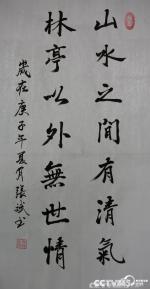 山水之間有清氣
林亭以外無世情
歲在庚子年夏月張斌書
CCTV.com